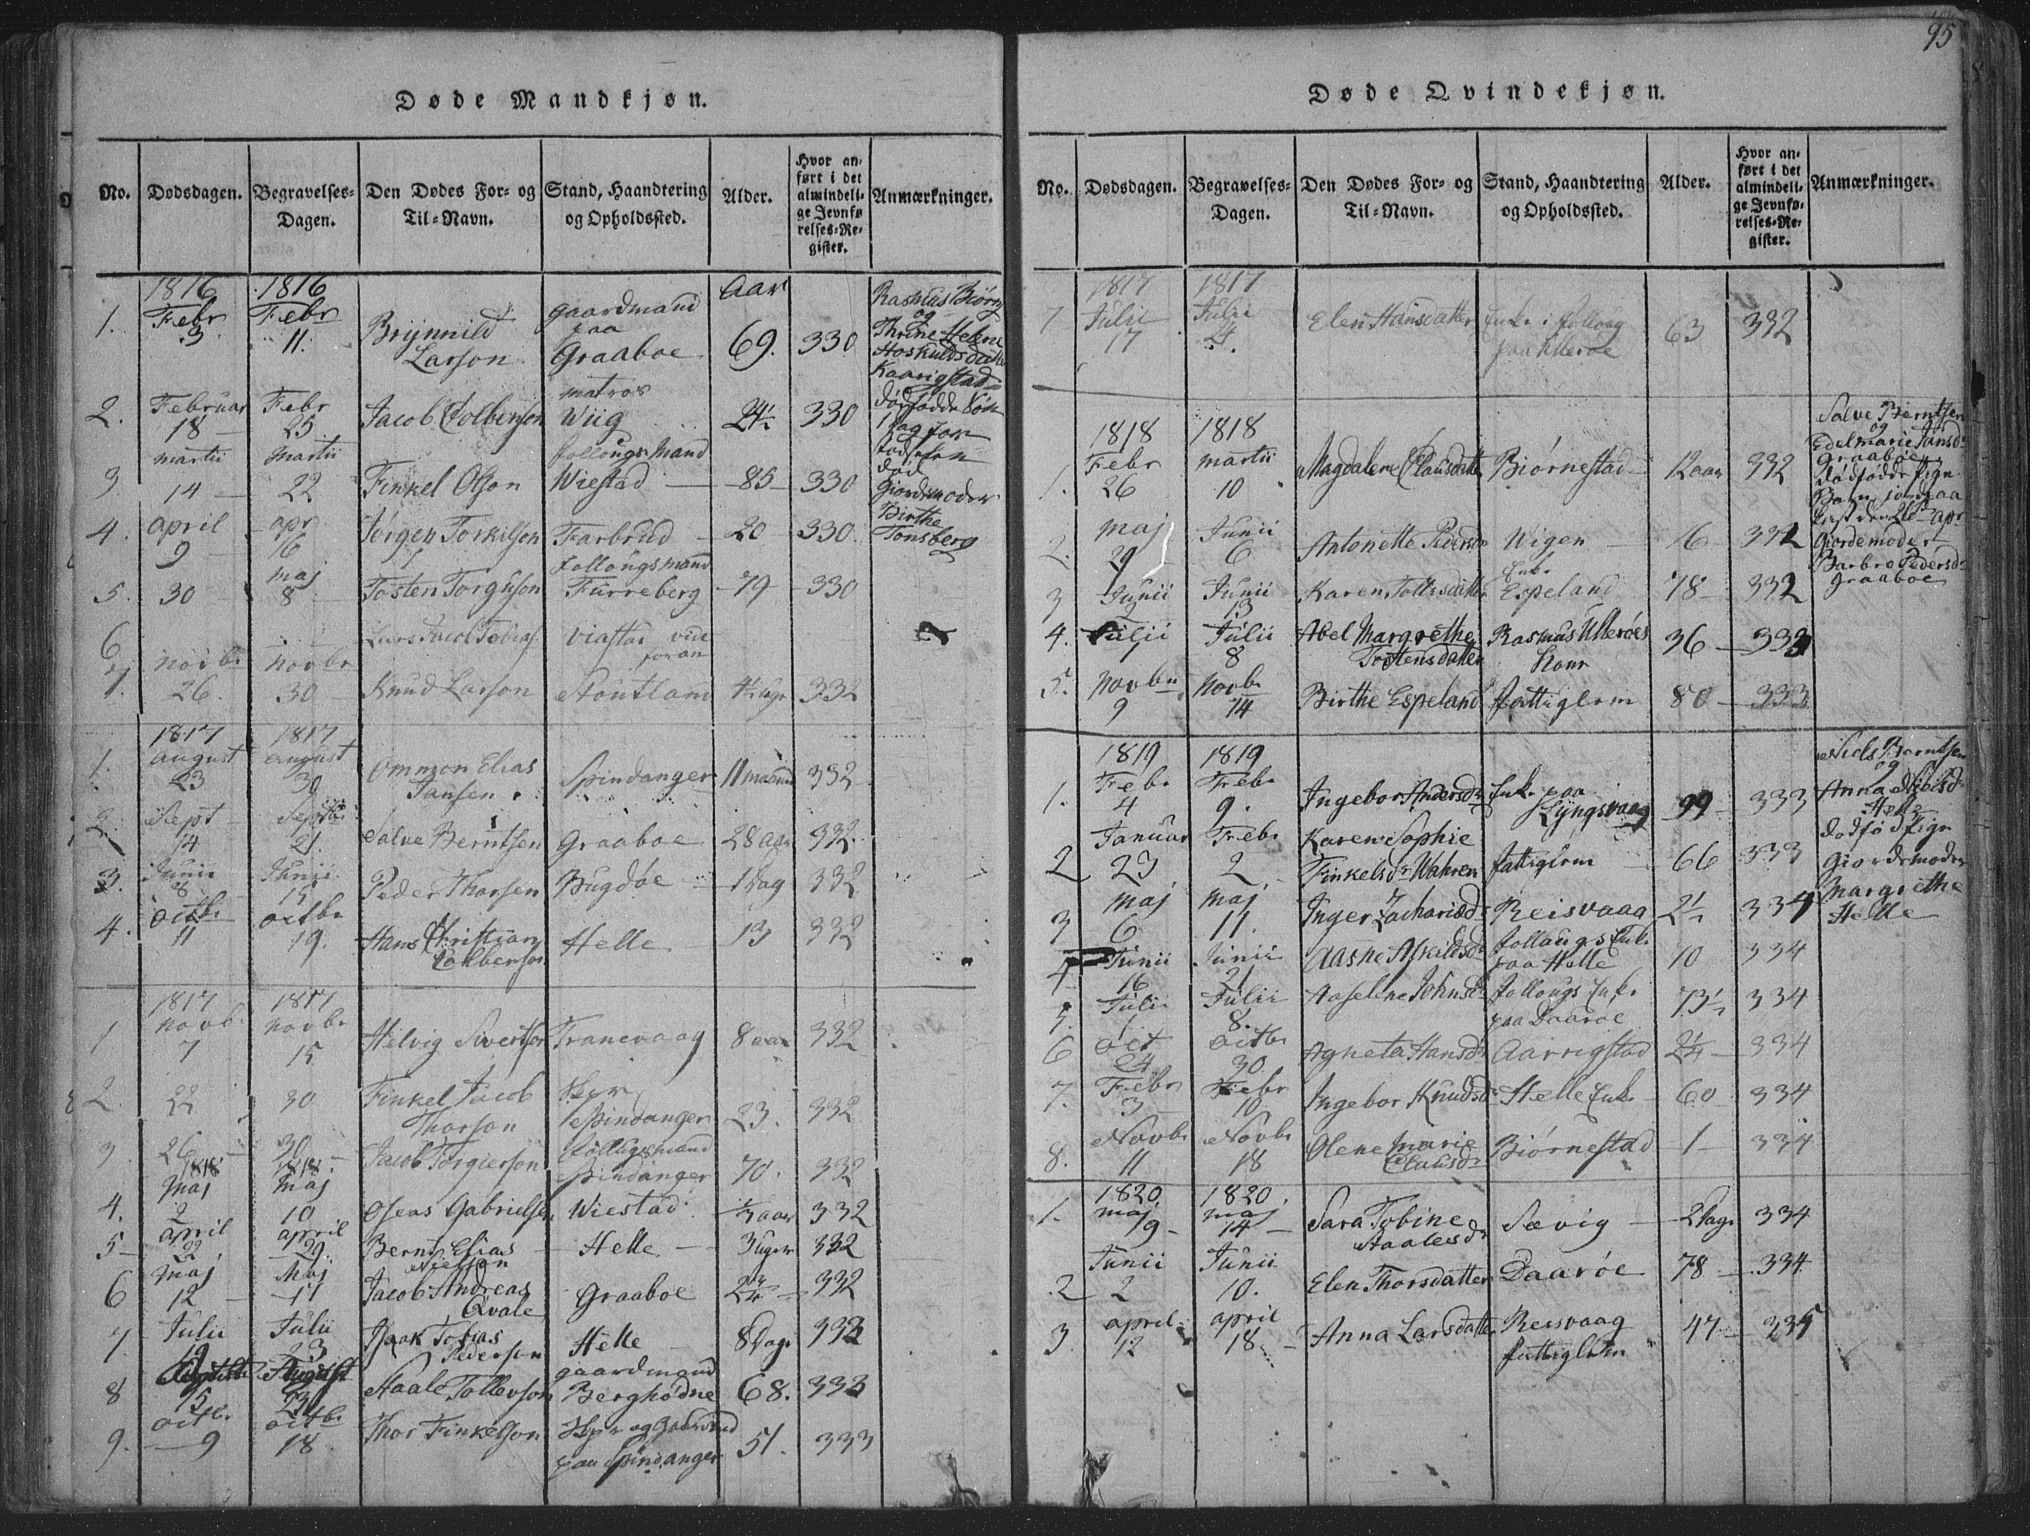 95
Døde Mandkjøn.
No. Dødsdagen. Begravelses-Dagen. Den Dødes For- og Til-Navn. Stand, Haandtering og Opholdssted. Alder. Hvor anført i det almindelige Jevnførelses-Register. Anmærkninger.
1816 1816 Aar
1. Febr 3 Febr 11. Brynnild Larson gaardmand paa Graaboe 69. 330
2. Februar 18 Febr 25 Jacob Colbenson matros Wiig 24½ 330
3 martii 14 Martii 22 Finkel Olson follougs Mand Wiestad 85 330
4. april 9 apr 16 Jørgen Torkilson Farbrud 20 330.
5. 30 maj 8 Tosten Torguson follougsmand Furreberg 79 330
6 Lars Jacob Tobias. Viastad vide foran
7. novbr 26. novbr 30 Knud Larson Stoutland 332
Rasmus Biørn
og
Thrine Helene
Hoskuldsdatter
Kaarigstad
dødfødde Søn
1 Dag for
død
Giordemoder
Birthe
Tonsberg
1817 1817
1. august 23 august 30 Ommon Elias Jansen. Spindanger 11 maaned 332
2. Sept 14 Septbr 21 Salve Berntsen Graaboe 28 aar 332.
3. Junii 8 Junii 15 Peder Thorsen Bugdøe 1 Dag 332
4. octbr 11 octbr 19. Hans Christian Helle 13 332
1817 1817
1 novbr 7 novbr 15 Helvig Sivertson Tranevaag 8 aar 332
2. 22 30 Finkel Jacob Thorson Spindanger 23. 332
3. 26 30 Jacob Torgierson follugsmand Spindanger 70. 332
1818 1818
4. Maj 2 Maj 10 Oseas Gabrielsen Wiestad. 332
5 april 22 april 29 Bernt Elias Nielson Helle 3 uger 332
6 Maj 12 Maj 17 Jacob Andreas Qvale Graaboe 332
7 Julii 19 Julii 23 Isaak Tobias Pederson Helle 8 Dage 332
8 15 August 23 Staale Tollevson gaardmand Berghødne 68. 333
9. octbr. 9 octbr 18 Thor Finkelson Spindanger 51. 333
Døde Qvindekjøn.
No. Dødsdagen. Begravelses-Dagen. Den Dødes For- og Til-Navn. Stand, Haandtering og Opholdssted. Alder. Hvor anført i det almindelige Jevnførelses-Register. Anmærkninger.
1817 1817
7 Julii 17 Julii Elen Hansdatter Enke i follaug paa Ullerøe 63 332
1818 1818
1. Febr 26 martii 10 Magdalene Clausdatter Biørnestad 12 aar 332
2. maj 29 Junii 6 Antonette Wigen 16 332
3 Junii Junii 13 Karen Tollisdatter Enke Espeland 78 332
4. Julii 1 Julii 8 Abel Margrethe Tostensdatter Rasmus Ullerøes Kone 36 333
5. Novbr 9 Novbr 14 Birthe Espeland fattiglem 80 333
Salve Berntsen
og
Edelmarie Jansdr
Graaboe
dødfødde Pige
Barn
Giordemoder
Barbro Pedersdr
Graaboe
1819 1819
1. Febr 4 Febr 9. Ingebor Andersdr Enke paa Lyngsvaag 99 333
2 Januar 23 Febr 2 Karen Sophie Finkelsdr Wahren fattiglem 66 333
3 maj 6 maj 11. Inger Zachariasdr Reisvaag 2½ 334
4 Junii 16 Junii 21 Aasne Askildsdr follougs Enke paa Helle 70 334
5. Julii Julii 8. Aaselene Johnsdr follougs Enke paa Daarøe 73½ 334
6 Oct 24 octbr 30. Agneta Hansdr Aarrigstad 2¼ 334
7. Febr 3 Febr 10 Ingebor Knudsdr Helle Enke 60 334
8. Novbr 11 Novbr 18 Olene Marie Clausdr Biørnestad 1 334
Niels Berntsen
og
Anna Nielsdr
dødfød Pige
Giordemoder
Margrethe
Helle
1820. 1820.
1. maj 9 maj 14 Sara Tobine Staalesdr Sævig 2 Dage 334
2 Junii 2 Junii 10. Elen Thorsdatter Daarøe 78 334
3. april 12 april 18 Anna Larsdatter Reisvaag fattiglem 47 335